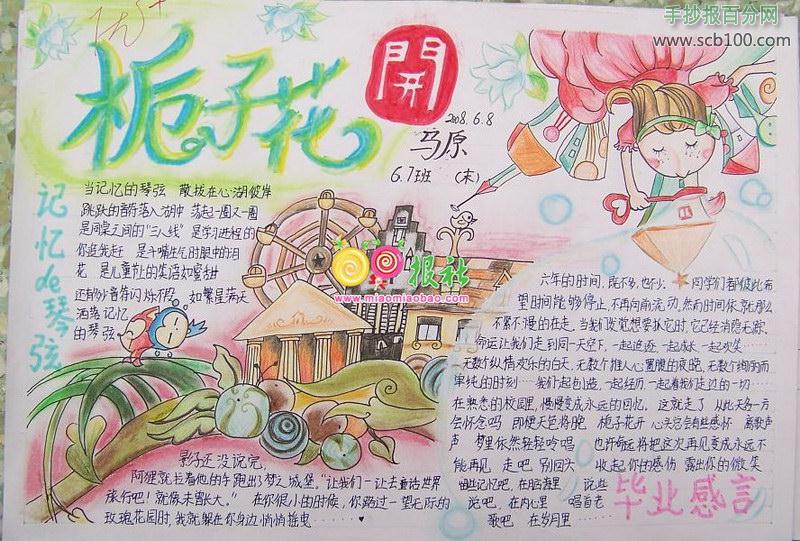 手抄报百分网
www.scb100.com
优+
栀子花
開
2008.6.8
马原
6.7班 (末)
记忆de琴弦
当记忆的琴弦 散拨在心湖彼岸
跳跃的音符落入湖中 荡起一圈又一圈
是同桌之间的“三八线” 是学习进程的
你追先赶 是斗嘴生气时眼中的泪
花 是儿童礼的笑语如蜜甜
还有的音符闪烁不停 如繁星满天
洒落记忆
的琴弦
喵喵报社
www.miaomiaobao.com
六年的时间,既不多,也不少. 同学们都彼此希
望时间能够停止,不再向前流动,然而时间依然就那么
不紧不慢的在走,当我们发觉想要抓它时,它已经消隐无踪.
命运让我们走到同一天空下,一起追逐,一起成长 一起欢笑
无数个纵情欢乐的白天,无数个推人心置腹的夜晚,无数个绚丽而
单纯的时刻……我们一起创造,一起经历,一起看我们走过的一切……
在熟悉的校园里,慢慢变成永远的回忆. 这就走了 从此天各一方
会怀念吗 即便天色将晚 栀子花开 心头总会有些感怀 离歌声
声 梦里依然轻轻吟唱 也许命运将把这次再见变成永远不
能再见 走吧 别回头 收起你的感伤 露出你的微笑
由些记忆吧 在脑海里 说些
说吧 在内心里 唱首老
歌吧 在岁月里……
毕业感言
影子还没说完,
阿狸就拉着他的车跑出了梦之城堡.“让我们一让去童话世界
旅行吧!就像未曾长大。” 在你很小的时候,你跑过一望无际的
玫瑰花园时,我就躲在你身边悄悄摇曳……